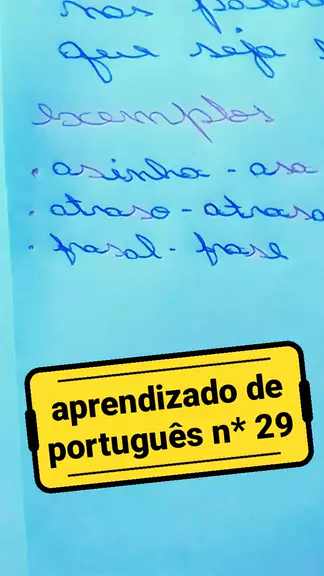 nas
que seja
exemplos
. asinha - asa
. atraso - atrasa
. frasal - frase
aprendizado de
português n* 29